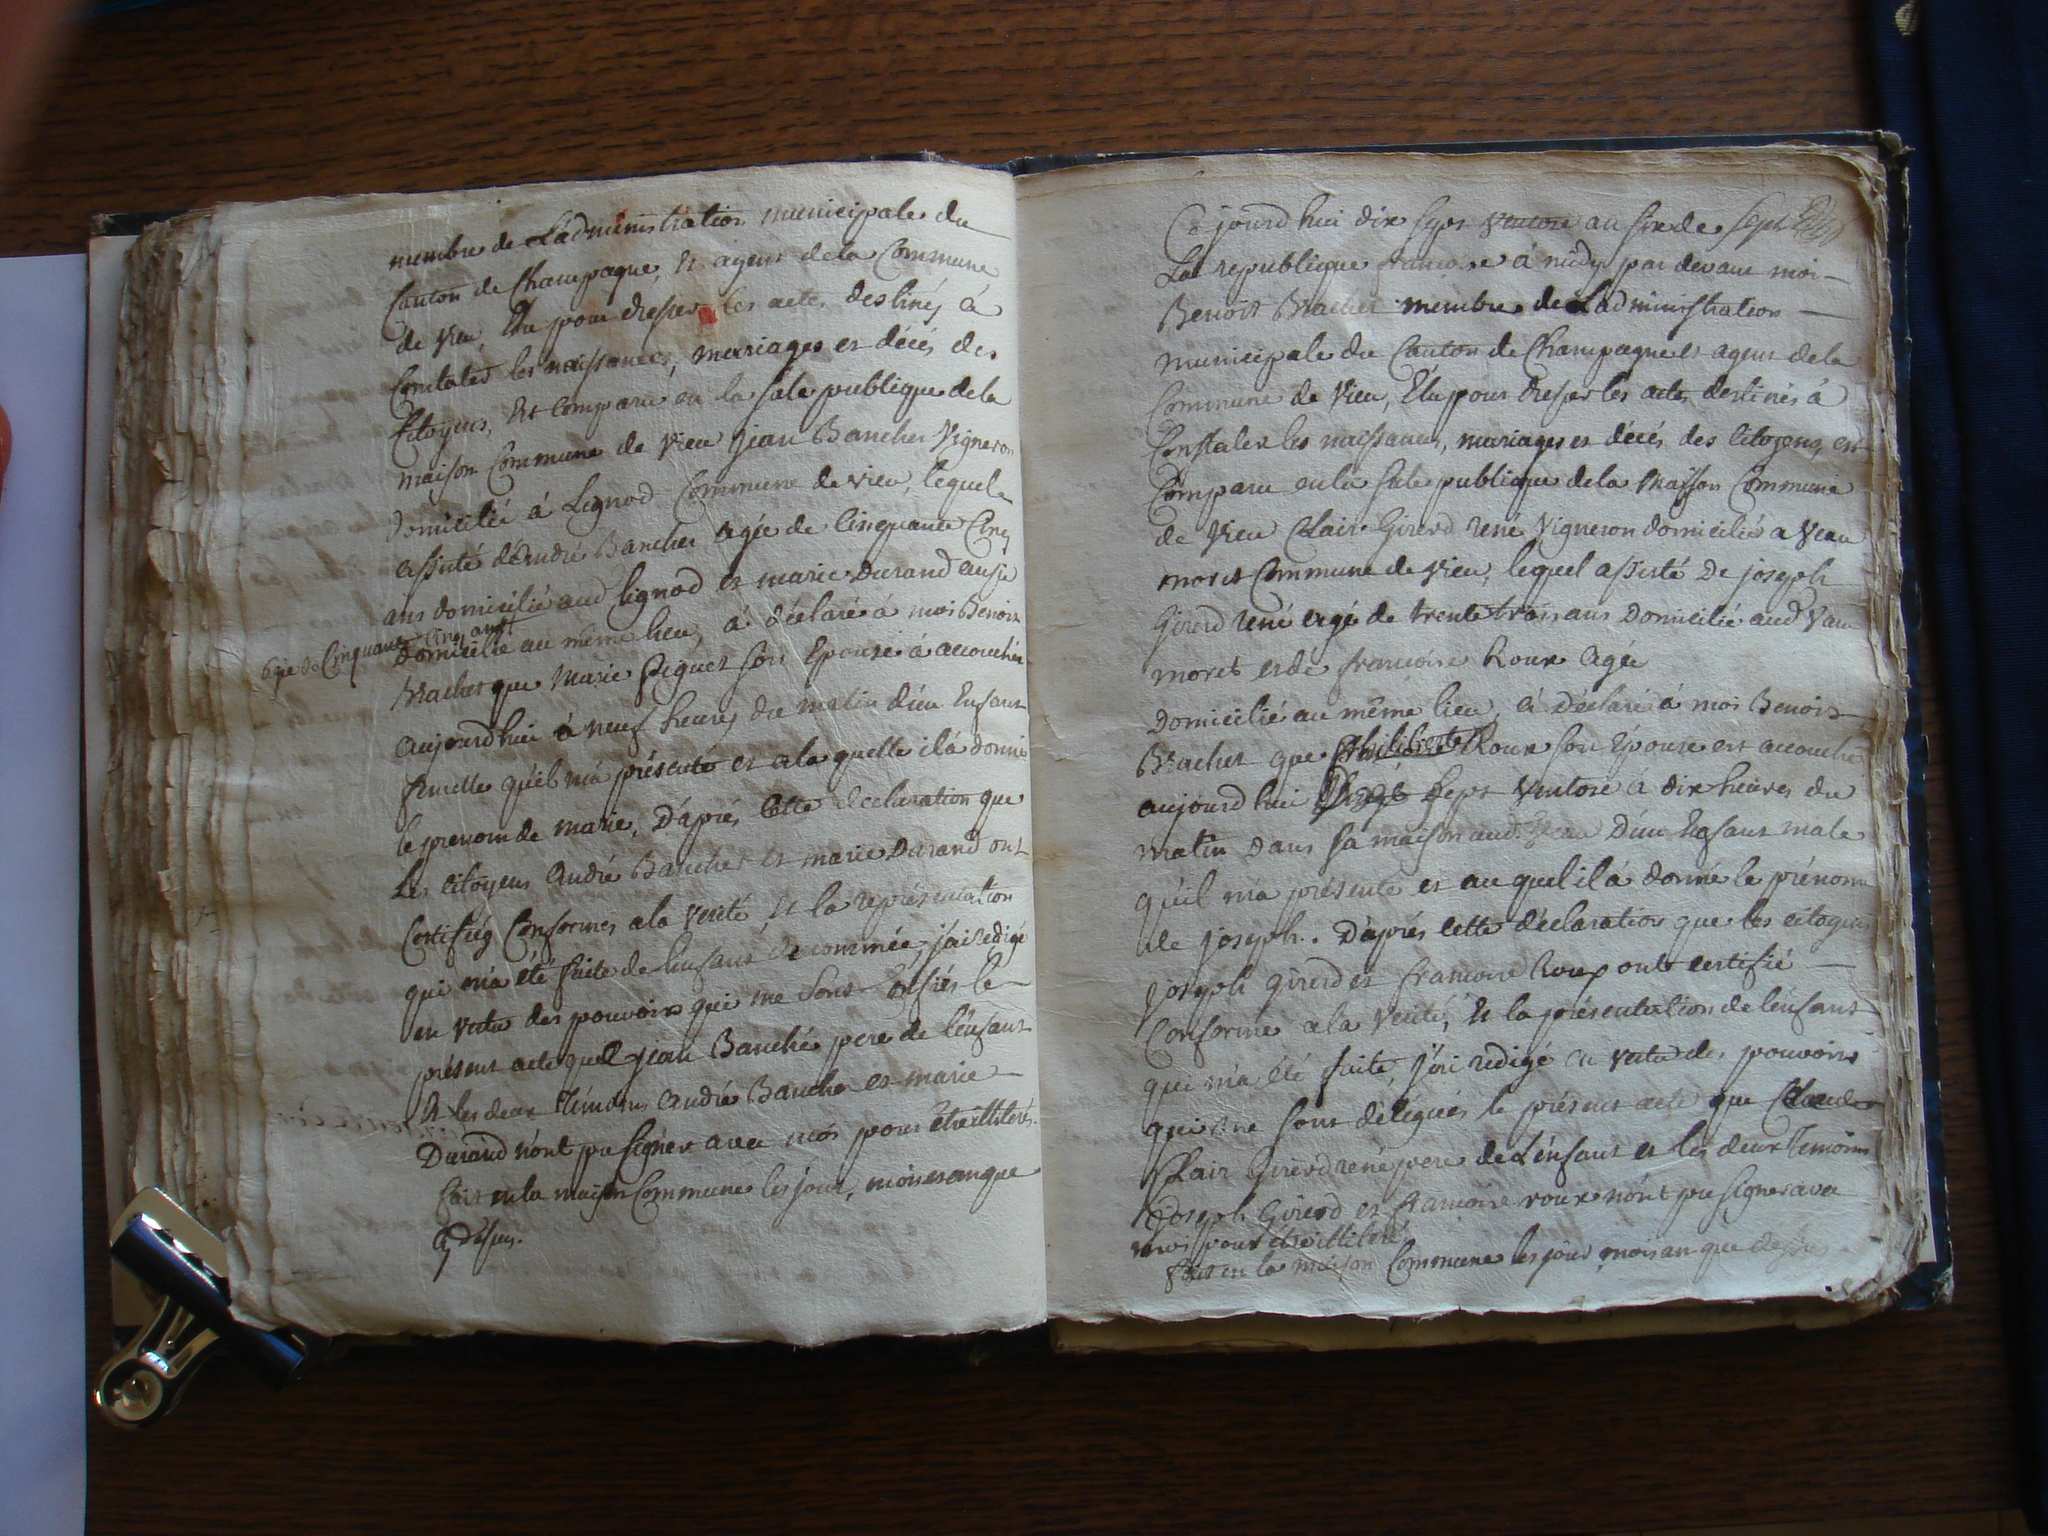 membre de Ladministration municipale du
Canton de Champagne, Et agent dela Commune
de vieu, Elu pour dresser les actes destinés à
Constater les naissances, mariages et décés des
Citoyens, Est comparu en la sale publique dela
maison Commune de vieu jean Bancher Vigneron
domicilié à Lignod Commune de vieu, lequel
assisté d'andré Bancher agée de Cinquante Cinq
ans domicilié aud lignod et marie Durand ausi
agée de Cinquante cinq ans
domicilié au même lieu, à déclaré à moi Benoit
Brachet que Marie Piguet son Epouse à accouchée
aujourdhui à neuf heures du matin d'un Enfant
femelle qu'il m'a présenté et ala quelle il à donné
le prenom de marie, D'aprés cette declaration que
Les citoyens André Bancher et marie Durand ont
Certifiés Conformes ala verité Et la représentation
qui m'a été faite de lenfant denommée, j'ai redigé
en vertu des pouvoirs qui me sont le
présent acte que jean Banché pere de l'énfant
Et les deux Témoins André Banché et marie
Durand n'ont pu signer avec moi pour être illiterés.
fait en la maison Commune les jour, mois et an que
Cy dessus.
Ce jourd'hui dix sept ventose an six de
La republique francoise à midy par devant moi
Benoit Brachet membre de Ladministration
municipale du Canton de Champagne et agent dela
Commune de vieu, Elu pour dresser les actes destinés à
Constater les naissances, mariages et décés des Citoyens, est
Comparu en la sale publique dela Maison Commune
de vieu Clair Girerd rené Vigneron domicilié a Vau
moret Commune de vieu, lequel assisté de joseph
Girerd rené agé de trente trois ans Domicilié aud Vau
moret et de francoise Roux agée
Domicilié au même lieu, à Déclaré à moi Benoit
Brachet que Philiberte Roux son Epouse est accouché
aujourdhui sept ventose à dix heures du
matin dans sa maison aud D'un Enfant male
qu'il m'a présenté et au quel il à donné le prénom
de joseph. D'aprés cette déclaration que les citoyens
joseph girerd et francoise Roux ont certifié
Conforme ala verité, Et la présentation de l'énfant
qui m'a été faite, j'ai redigé en vertu des pouvoirs
qui me sont délégués le présent acte que
Clair Girerd rené pere de L'énfant et les deux Temoins
joseph Girerd et francoise roux n'ont pu signer avec
moi pour être illiteré
fait en la maison Commune les jour mois an que dessus